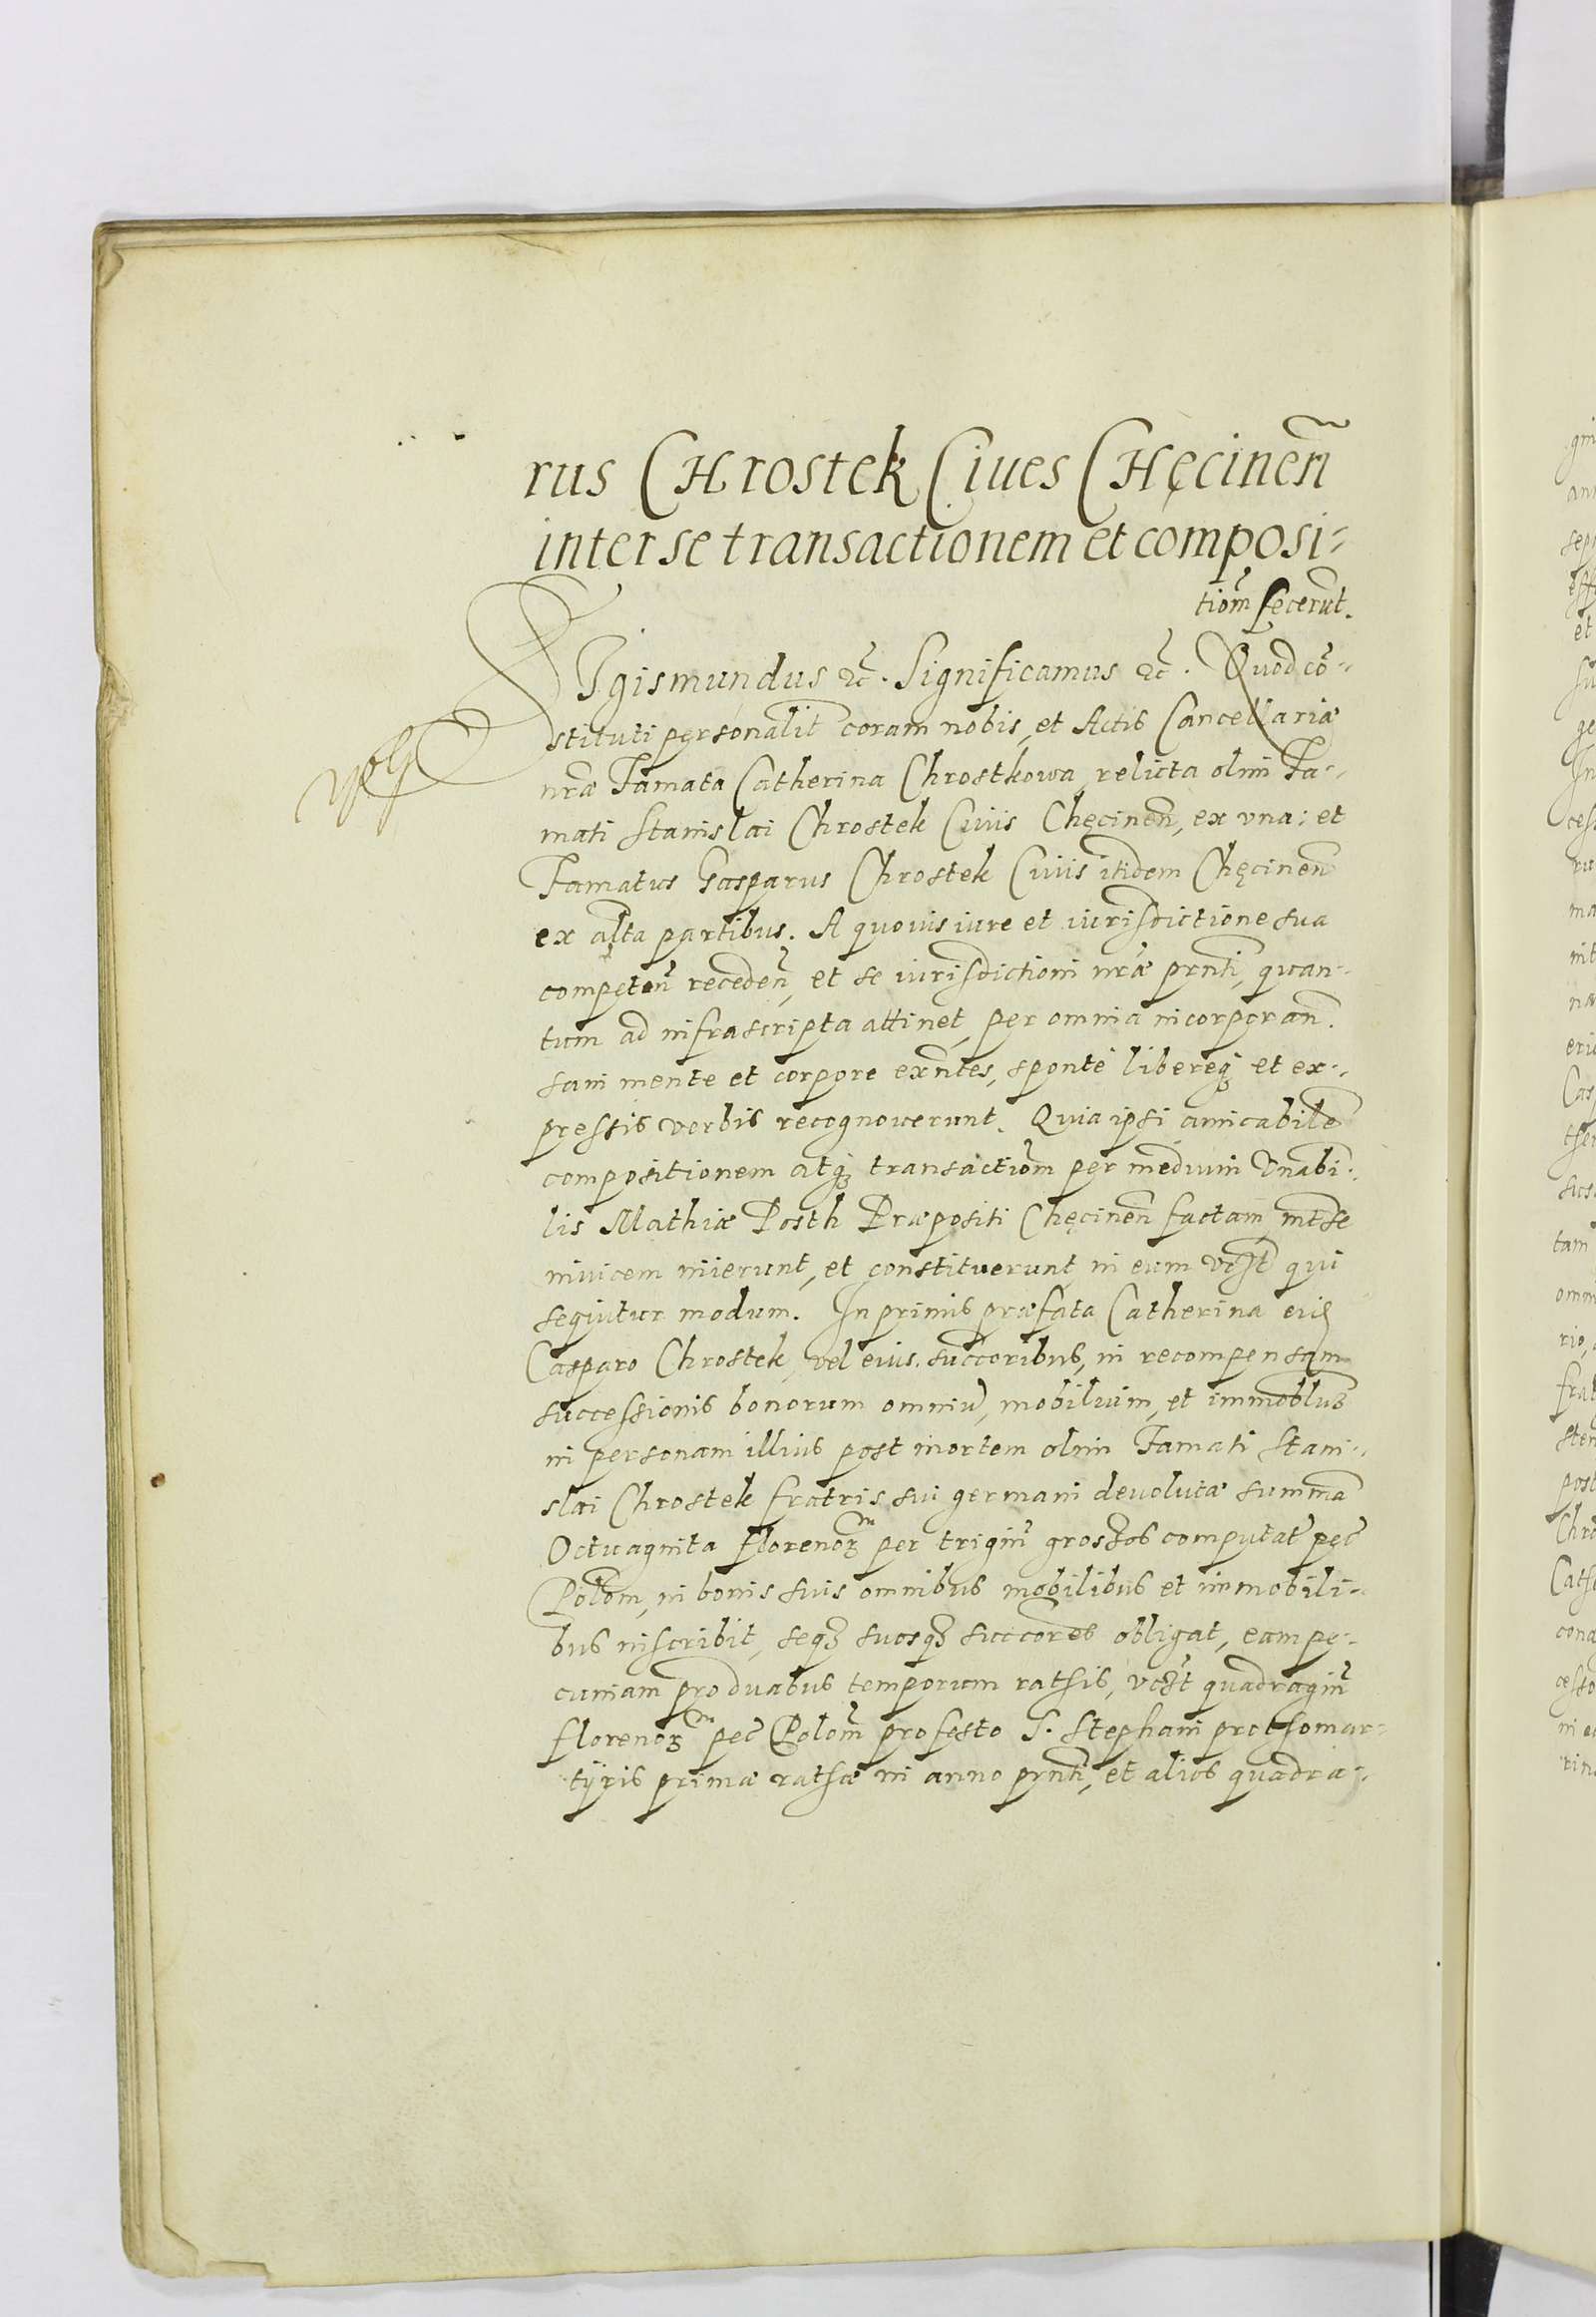 rus CHrostek Ciues CHęcineñ
inter se transactionem et composi-
tiom̃ fecerũt.
SIgismundus ꝛc̃. Significamus ꝛc̃. Quod cõ-
stituti personalit̃ coram nobis, et Actis Cancellariæ
nr̃æ Famata Catherina Chrostkowa relicta olim Fa-
mati Stanislai Chrostek Ciuis Chęcineñ, ex vna; et
Famatus Gasparus Chrostek Ciuis itidem Chęcineñ
ex alt̃a partibus. A quouis iure et iurisdictione sua
competeñ recedeñ, et se iurisdictioni nr̃æ pr̃nti, quan-
tum ad infrascripta attinet, per omnia incorporañ.
sani mente et corpore exñtes, sponte libereqꝫ et ex-
pressis verbis recognouerunt. Quia ipsi amicabilẽ
compositionem atqꝫ transactiom̃ per medium Vnabi-
lis Mathiæ Posth Præpositi Chęcineñ factam int̃ se
inuicem inierunt, et constituerunt in eum vᷤt qui
sequitur modum. In primis præfata Catherina eid
Casparo Chrostek, vel eius succoribus, in recompensam
successionis bonorum omniũ, mobilium, et immobl̃ius
in personam illius post mortem olim Famati Stani-
slai Chrostek fratris sui germani deuolutæ summã
Octuaginta florenoꝝ per trigiñ grossos computat̃ pec̃
Polom̃, in bonis suis omnibus mobilibus et immobili-
bus inscribit, seqꝫ suosqꝫ succores obligat, eam pe-
cuniam pro duabus temporum rathis, vᷤt quadragiñ
florenoꝝ pec̃ Polom̃ pro festo S. Stephani prothomar-
tÿris primæ rathæ in anno pr̃nti, et alios quadra-